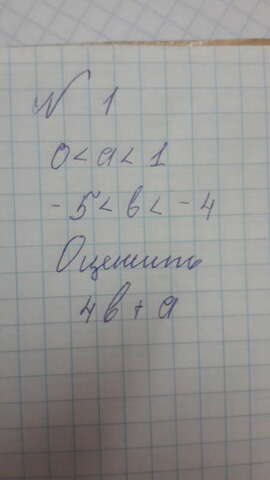 N 1
0 < a < 1
- 5 < b < - 4
Оценить
4b + a